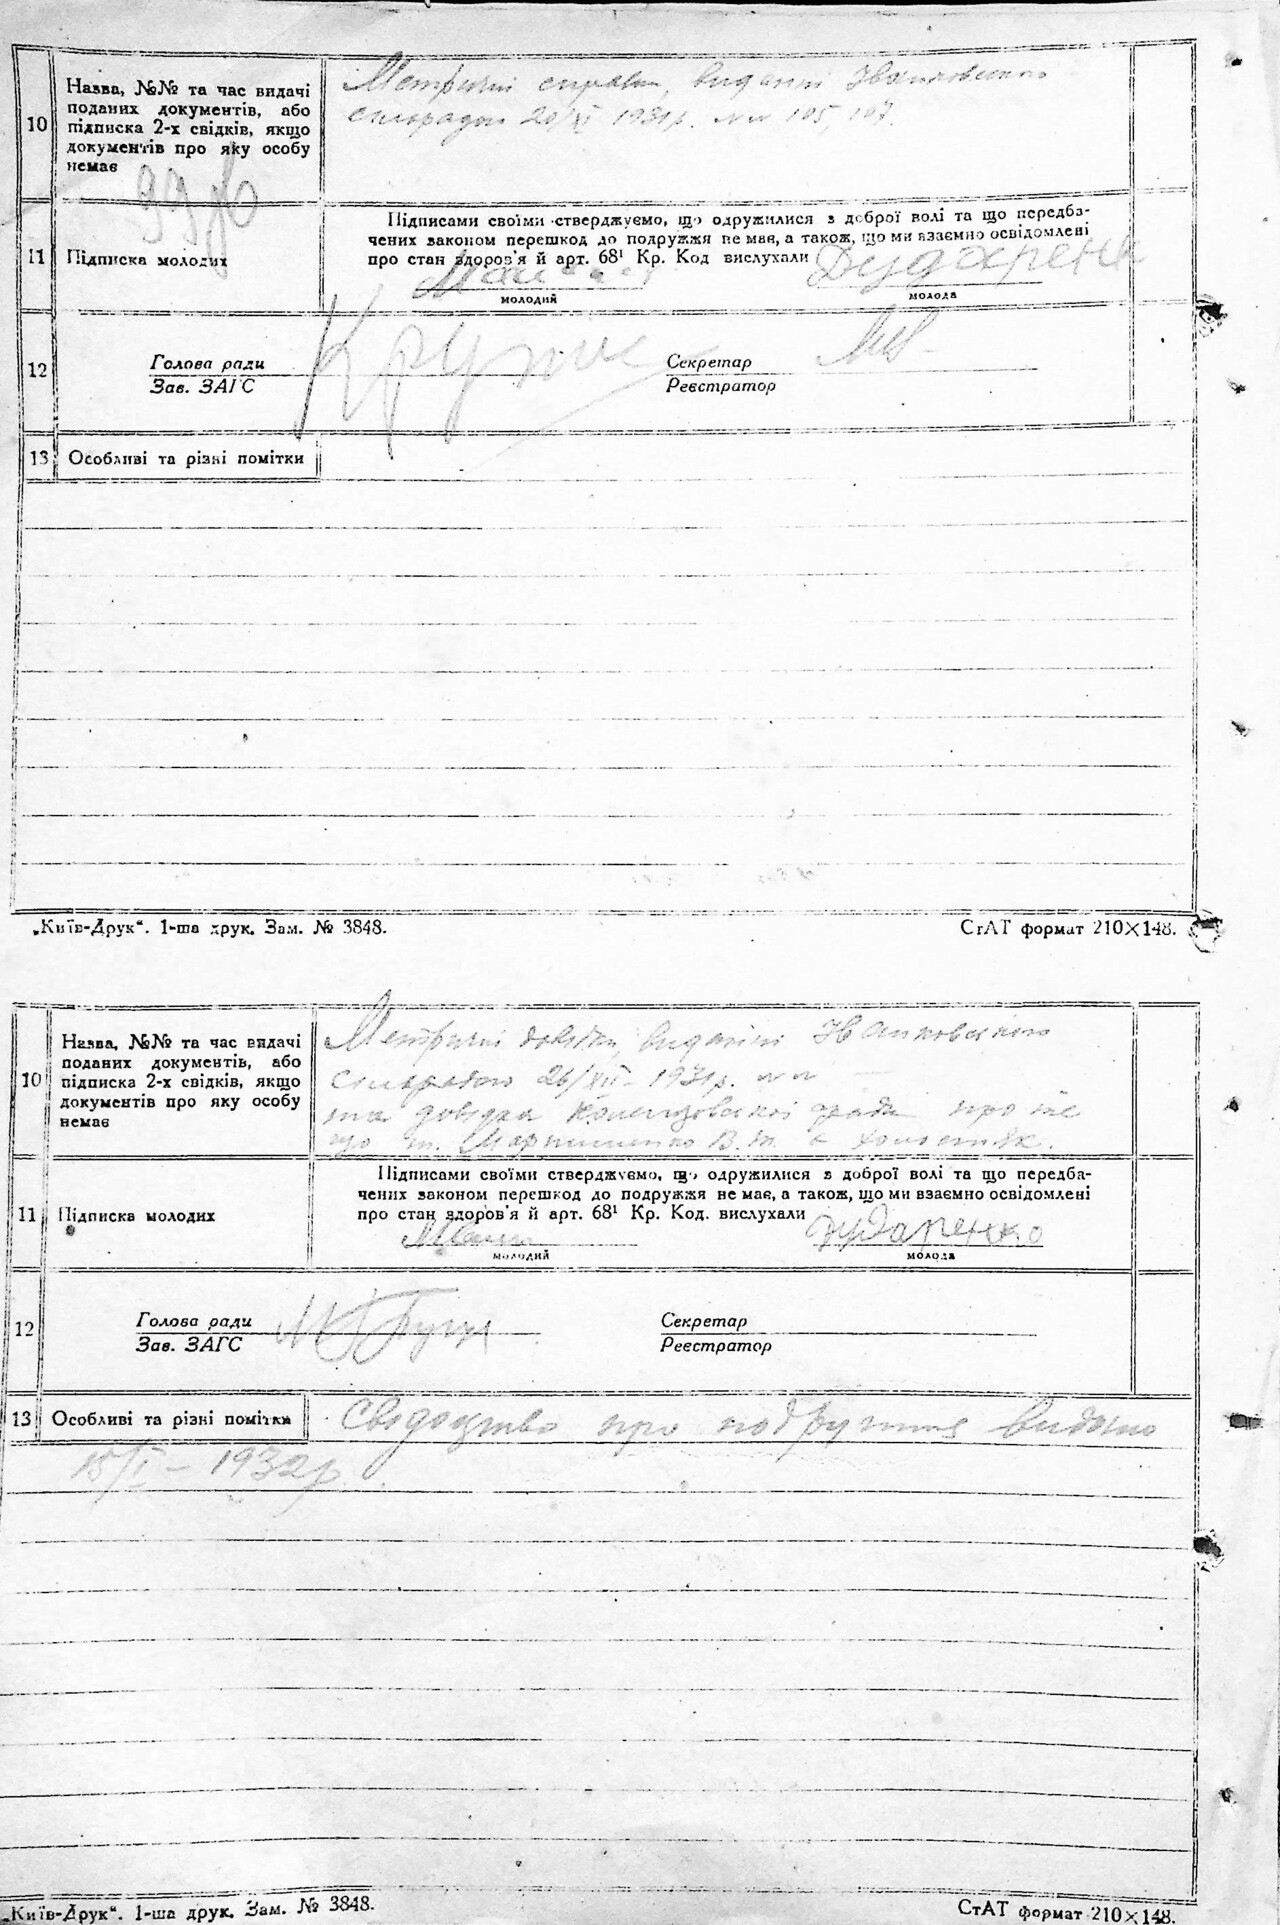 10
Назва, №№ та час видачі
поданих документів, або
підписка 2-х свідків, якщо
документів про яку особу
немає
Метричні видані Іванковською
сільрадою 20/XI 1931р. №№ 105, 107.
11
Підписка молодих
Підписами своїми стверджуємо, що одружилися з доброї волі та що передба-
чених законом перешкод до подружжя не має, а також, що ми взаємно освідомлені
про стан здоров'я й арт. 68¹ Кр. Код вислухали
Дударенк
молодий
молода
12
Голова ради
Зав. ЗАГС
Секретар
Реєстратор
13
Особливі та різні помітки
„Київ-Друк“. 1-ша друк. Зам. № 3848.
СтАТ формат 210×148.
10
Назва, №№ та час видачі
поданих документів, або
підписка 2-х свідків, якщо
документів про яку особу
немає
Метричні довідки, видані Іванковською
сільрадою 26/XII – 1931р. №№ —
та довідка ради про те
що т. Мартиненко В. є холостяк.
11
Підписка молодих
Підписами своїми стверджуємо, що одружилися з доброї волі та що передба-
чених законом перешкод до подружжя не має, а також, що ми взаємно освідомлені
про стан здоров'я й арт. 68¹ Кр. Код. вислухали
Дударенко
молодий
молода
12
Голова ради
Зав. ЗАГС
Секретар
Реєстратор
13
Особливі та різні помітки
Свідоцтво про подружжя видано
15/I – 1932р.
„Київ-Друк“. 1-ша друк. Зам. № 3848.
СтАТ формат 210×148.